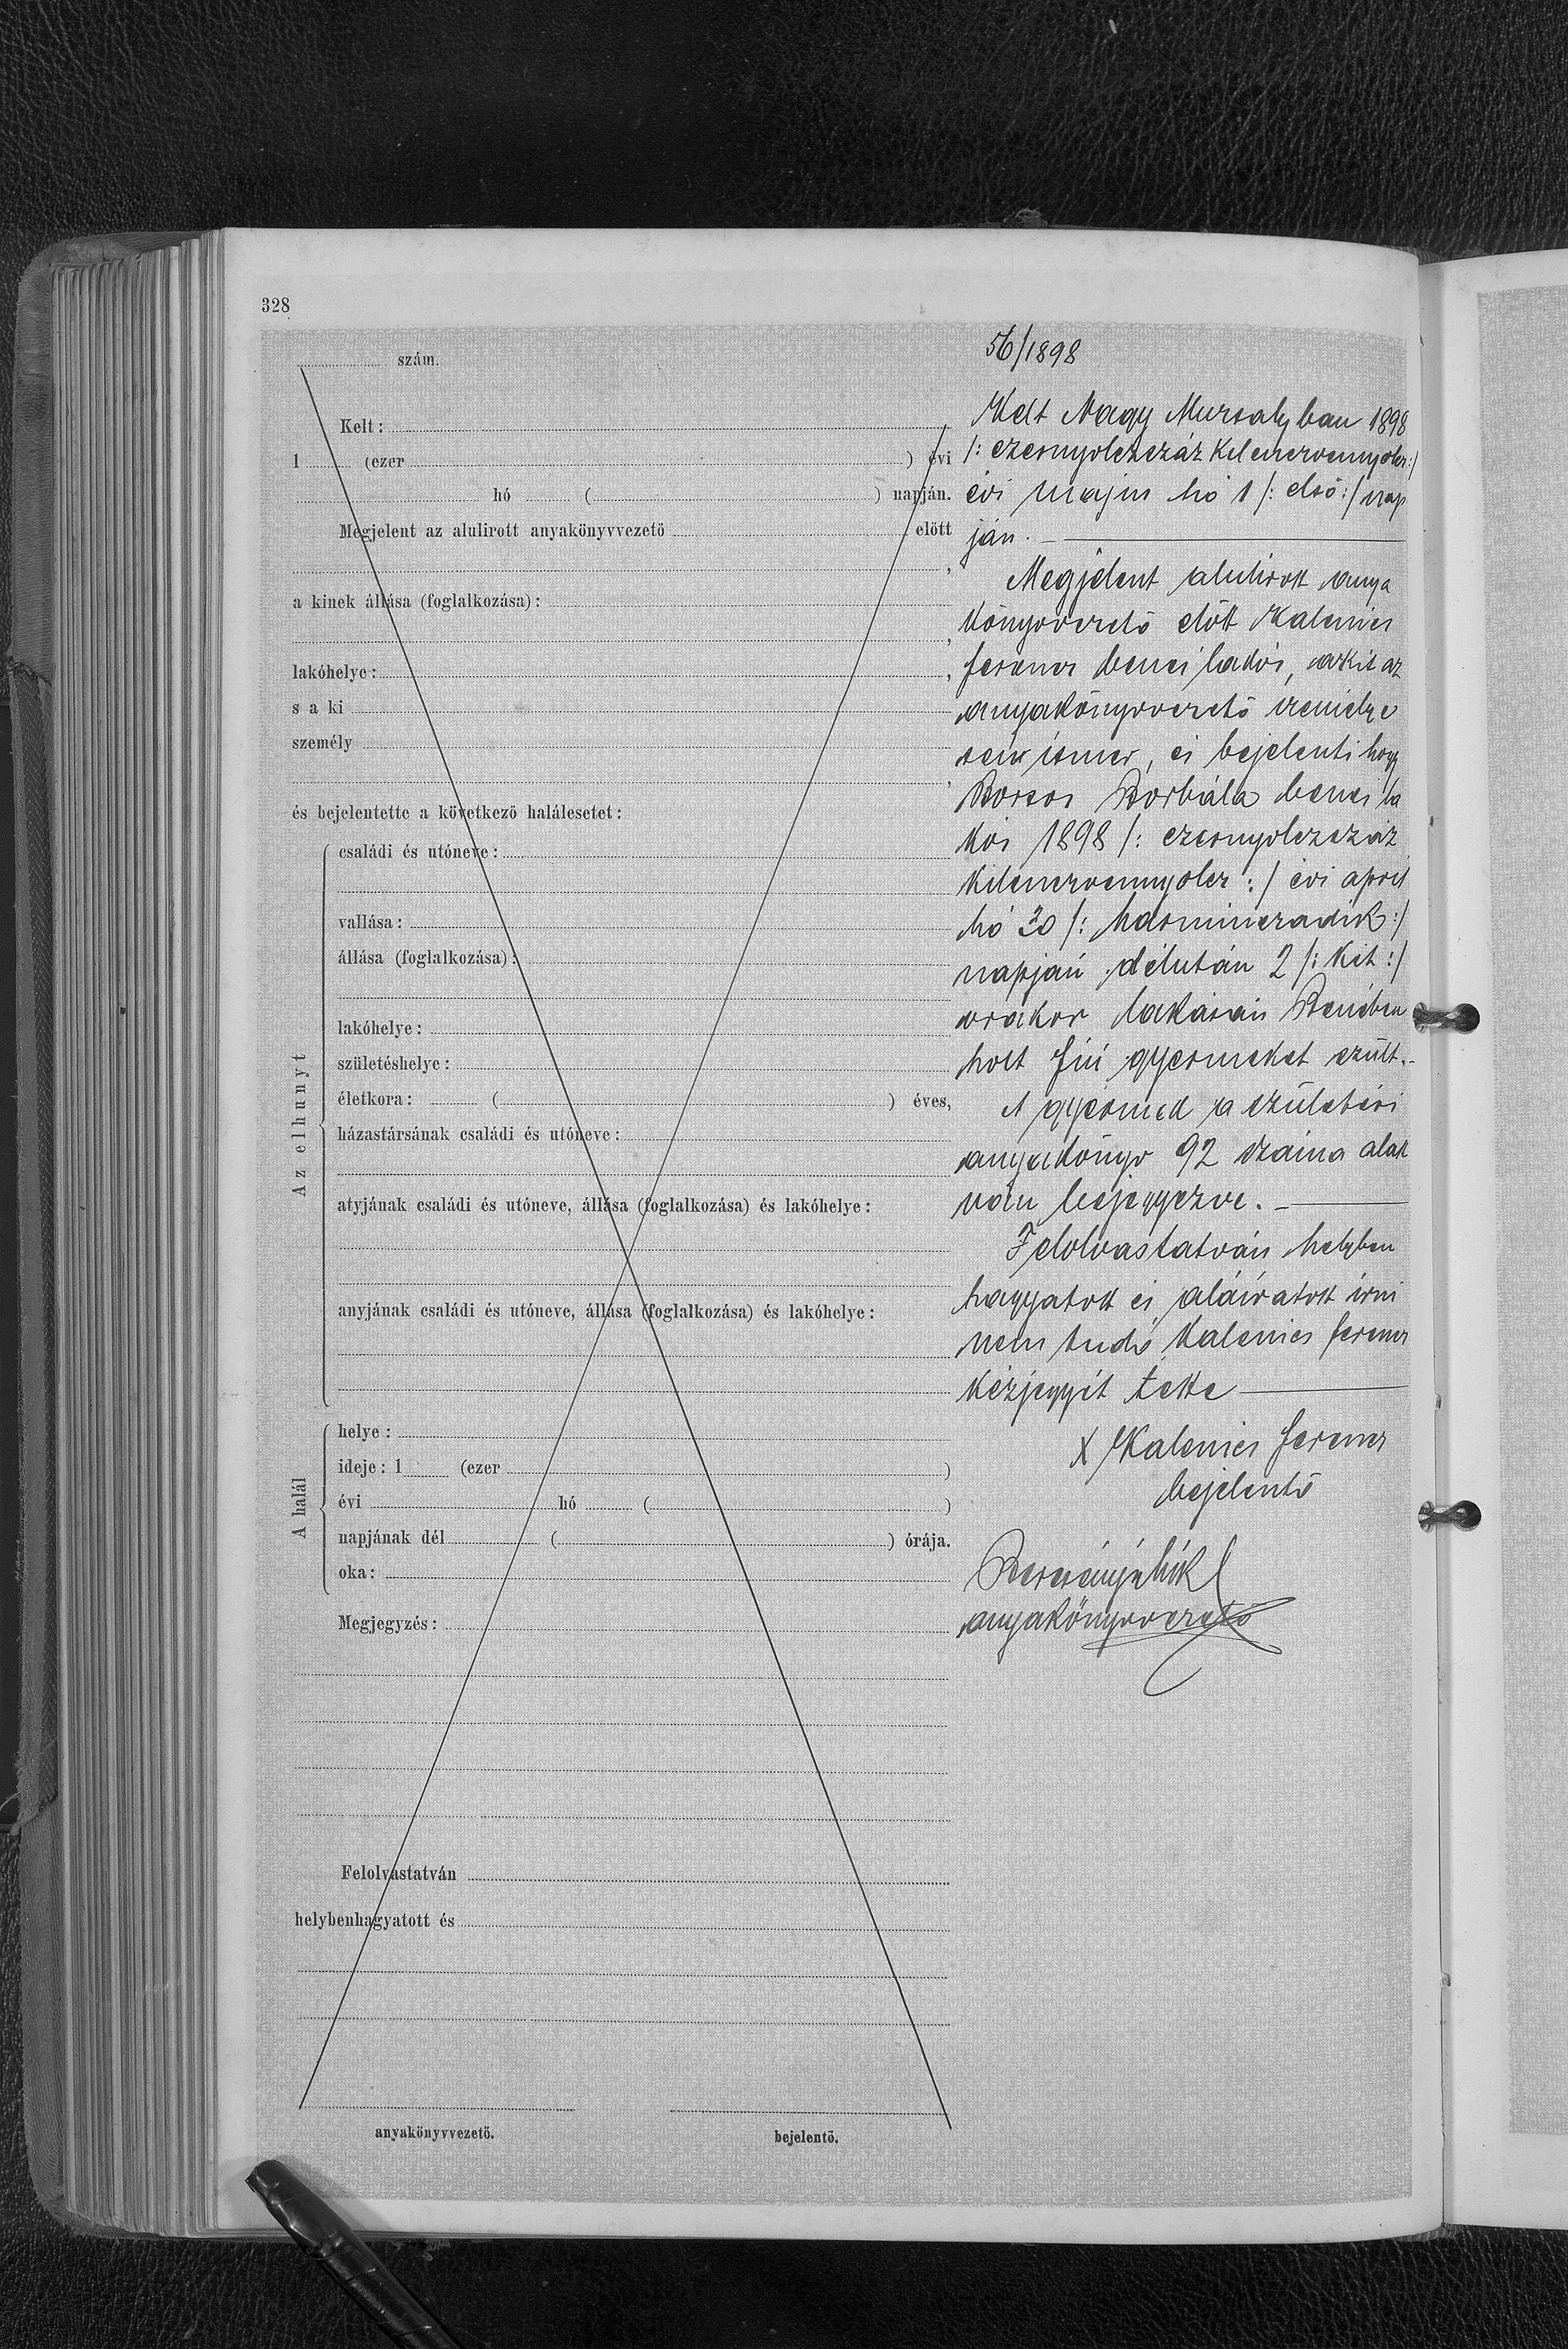 328
szám.
Kelt:
1 (ezer ) évi
hó ( ) napján.
Megjelent az alulirott anyakönyvvezető előtt
,
a kinek állása (foglalkozása):
,
lakóhelye: ,
s a ki
személy
,
és bejelentette a következő halálesetet:
Az elhunyt
családi és utóneve:
vallása:
állása (foglalkozása):
lakóhelye:
születéshelye:
életkora: ( ) éves,
házastársának családi és utóneve:
atyjának családi és utóneve, állása (foglalkozása) és lakóhelye:
anyjának családi és utóneve, állása (foglalkozása) és lakóhelye:
A halál
helye:
ideje: 1 (ezer )
évi hó ( )
napjának dél ( ) órája.
oka:
Megjegyzés:
Felolvastatván
helybenhagyatott és
anyakönyvvezető.
bejelentő.
56/1898
Kelt Nagy Muzsalyban 1898
/: ezernyolczszáz kilenczvennyolcz :/
évi május hó 1 /: első :/ nap
ján. —
Megjelent alulirott anya
könyvvezető előtt Kalenics
Ferencz benei lakós, akit az
anyakönyvvezető személye
sen ismer, és bejelenti hogy
Borsos Borbála benei la
kós 1898 /: ezernyolczszáz
kilenczvennyolcz :/ évi april
hó 30 /: harminczadik :/
napján délután 2 /: két :/
orakor lakásán Benében
holt fiú gyermeket szült. -
A gyermek a születési
anyakönyv 92 száma alatt
van bejegyezve. —
Felolvastatván helyben
hagyatott és aláiratott irni
nem tudó Kalenics Ferencz
kézjegyét tette —
X Kalenics Ferencz
bejelentő
anyakönyvvezető